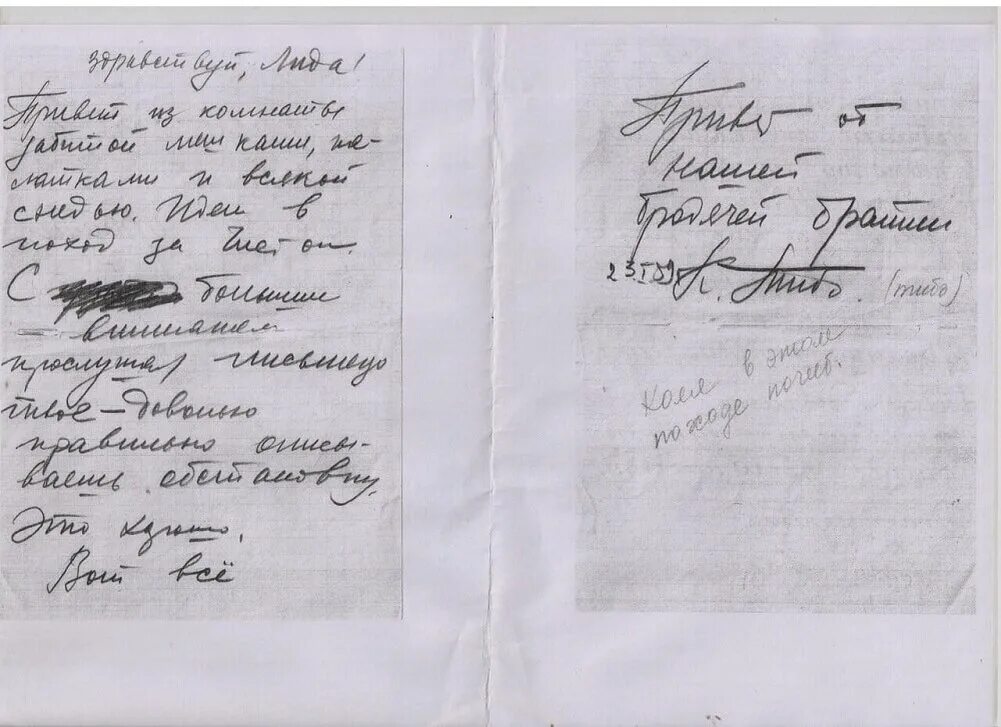 Здравствуй, Лида!
Привет из комнаты
забитой мешками, па-
латками и всякой
снедью. Идем в
поход за
С большим
вниманием
прослушал письмецо
твое – довольно
правильно описы-
ваешь обстановку.
Это хорошо.
Вот всё
Привет от
нашей
бродячей братии
23.I.59г К. Тибо. (тибо)
Коля в этом
походе погиб.